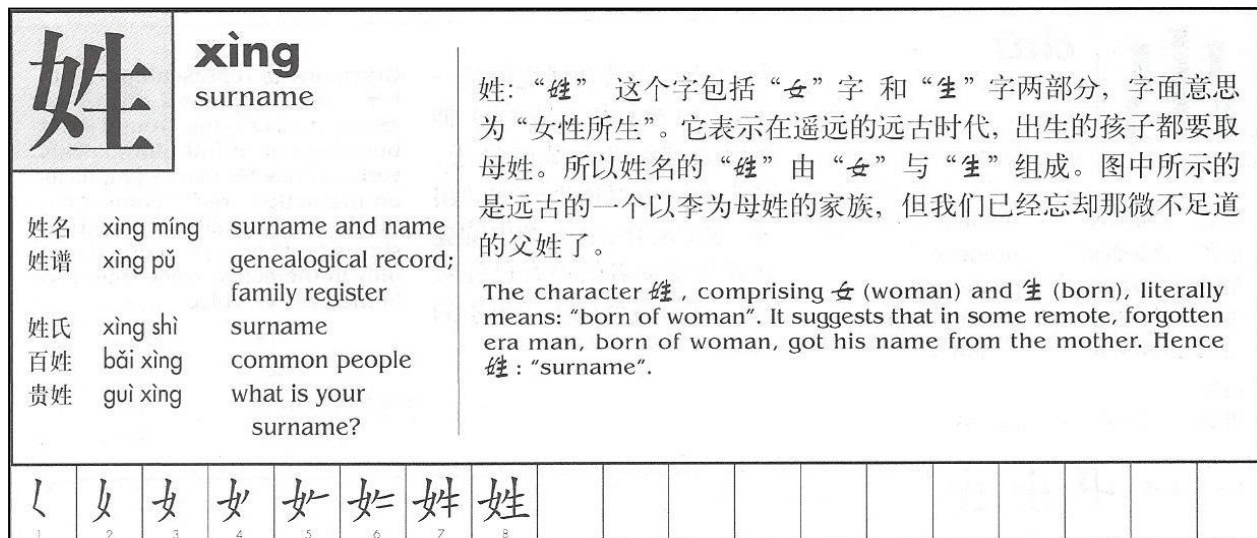 姓
xìng
surname
姓名 xìng míng surname and name
姓谱 xìng pǔ genealogical record;
family register
姓氏 xìng shì surname
百姓 bǎi xìng common people
贵姓 guì xìng what is your
surname?
姓：“姓” 这个字包括“女”字 和“生”字两部分，字面意思
为“女性所生”。它表示在遥远的远古时代，出生的孩子都要取
母姓。所以姓名的“姓”由“女”与“生”组成。图中所示的
是远古的一个以李为母姓的家族，但我们已经忘却那微不足道
的父姓了。
The character 姓, comprising 女 (woman) and 生 (born), literally
means: “born of woman”. It suggests that in some remote, forgotten
era man, born of woman, got his name from the mother. Hence
姓: “surname”.
1 2 3 4 5 6 7 8
女 姓